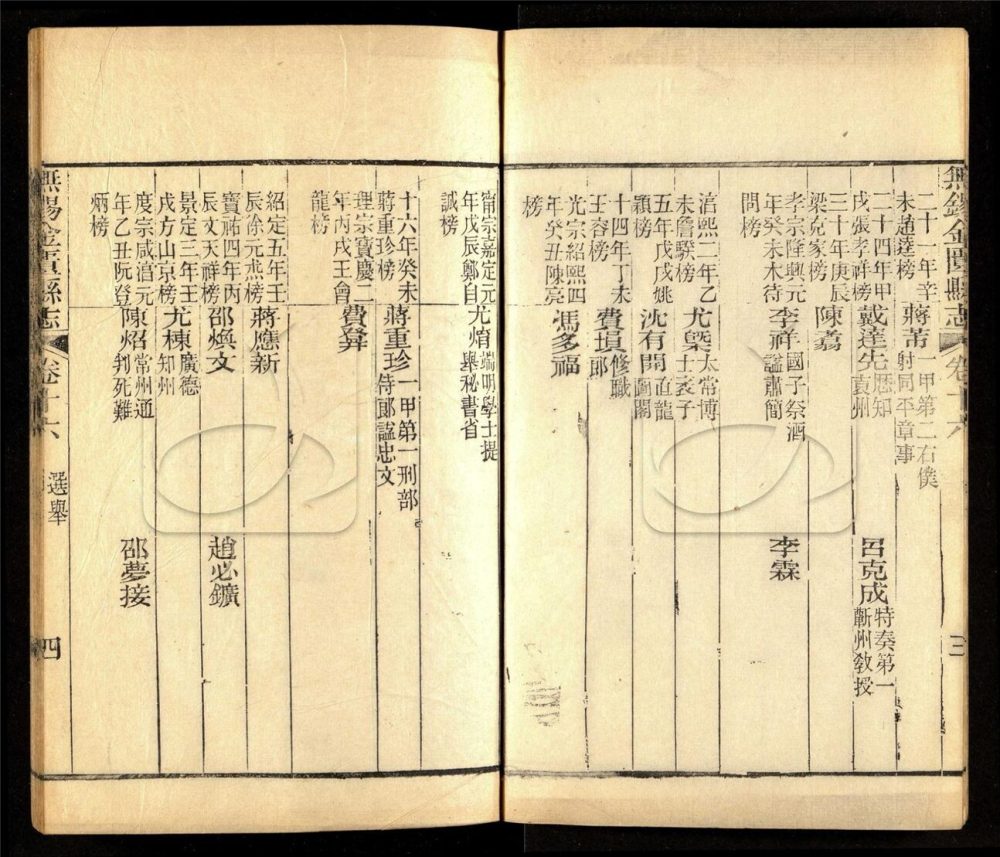 無錫金匱縣志 卷十六 三
二十一年辛未趙逵榜 蔣芾 一甲第二右僕射同平章事
二十四年甲戌張孝祥榜 戴達先 歷知袁州 呂克成 特奏第一蘄州教授
三十年庚辰梁克家榜 陳嘉
孝宗隆興元年癸未木待問榜 李祥 國子祭酒諡肅簡 李霖
淳熙二年乙未詹騤榜 尤㮣 太常博士袤子
五年戊戌姚穎榜 沈有開 直龍圖閣
十四年丁未王容榜 費塤 修職郎
光宗紹熙四年癸丑陳亮榜 馮多福
甯宗嘉定元年戊辰鄭自誠榜 尤焴 端明學士提舉秘書省
十六年癸未蔣重珍榜 蔣重珍 一甲第一刑部侍郎諡忠文
理宗寶慶二年丙戌王會龍榜 費㒷
紹定五年壬辰徐元杰榜 蔣應新
寶祐四年丙辰文天祥榜 邵煥文 趙必鑛
景定三年壬戌方山京榜 尤棟 廣德知州
度宗咸淳元年乙丑阮登炳榜 陳炤 常州通判死難 邵夢接
無錫金匱縣志 卷十六 選舉 四